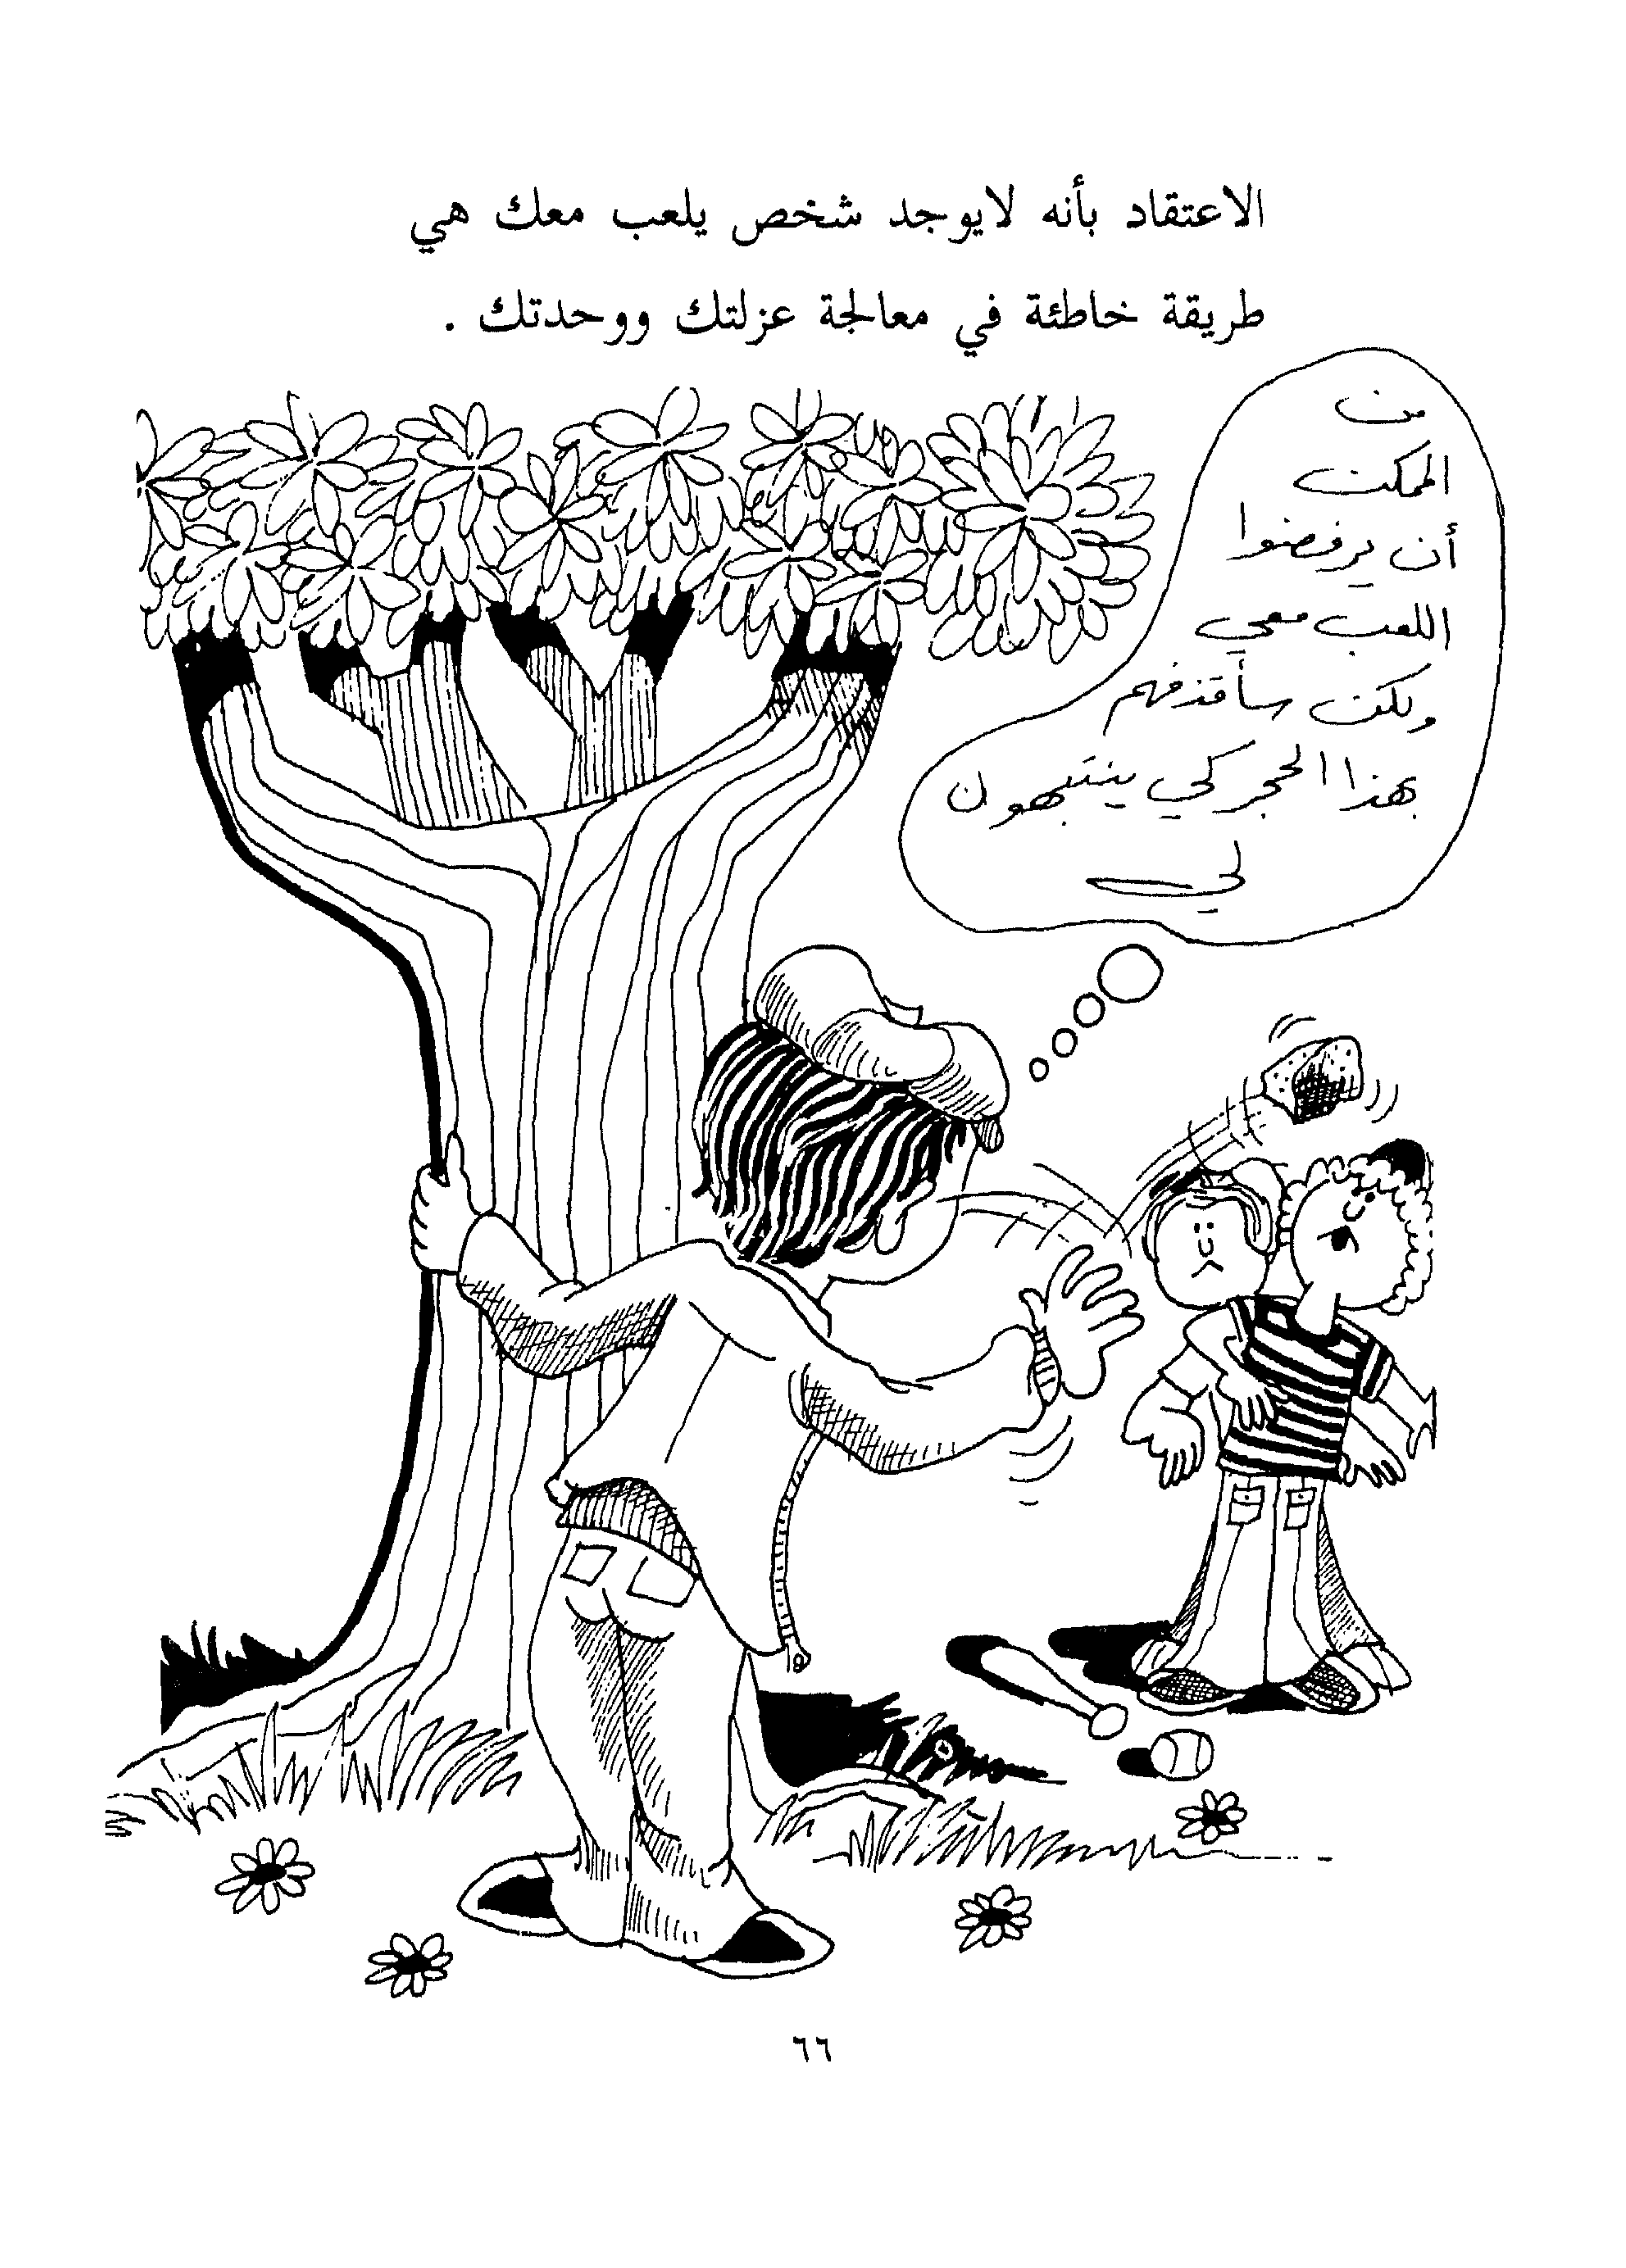 الاعتقاد بأنه لايوجد شخص يلعب معك هي
طريقة خاطئة في معالجة عزلتك ووحدتك .
من
الممكن
أن يرفضوا
اللعب معي
ولكن سأقذفهم
بهذا الحجر كي ينتبهون
لي
٦٦